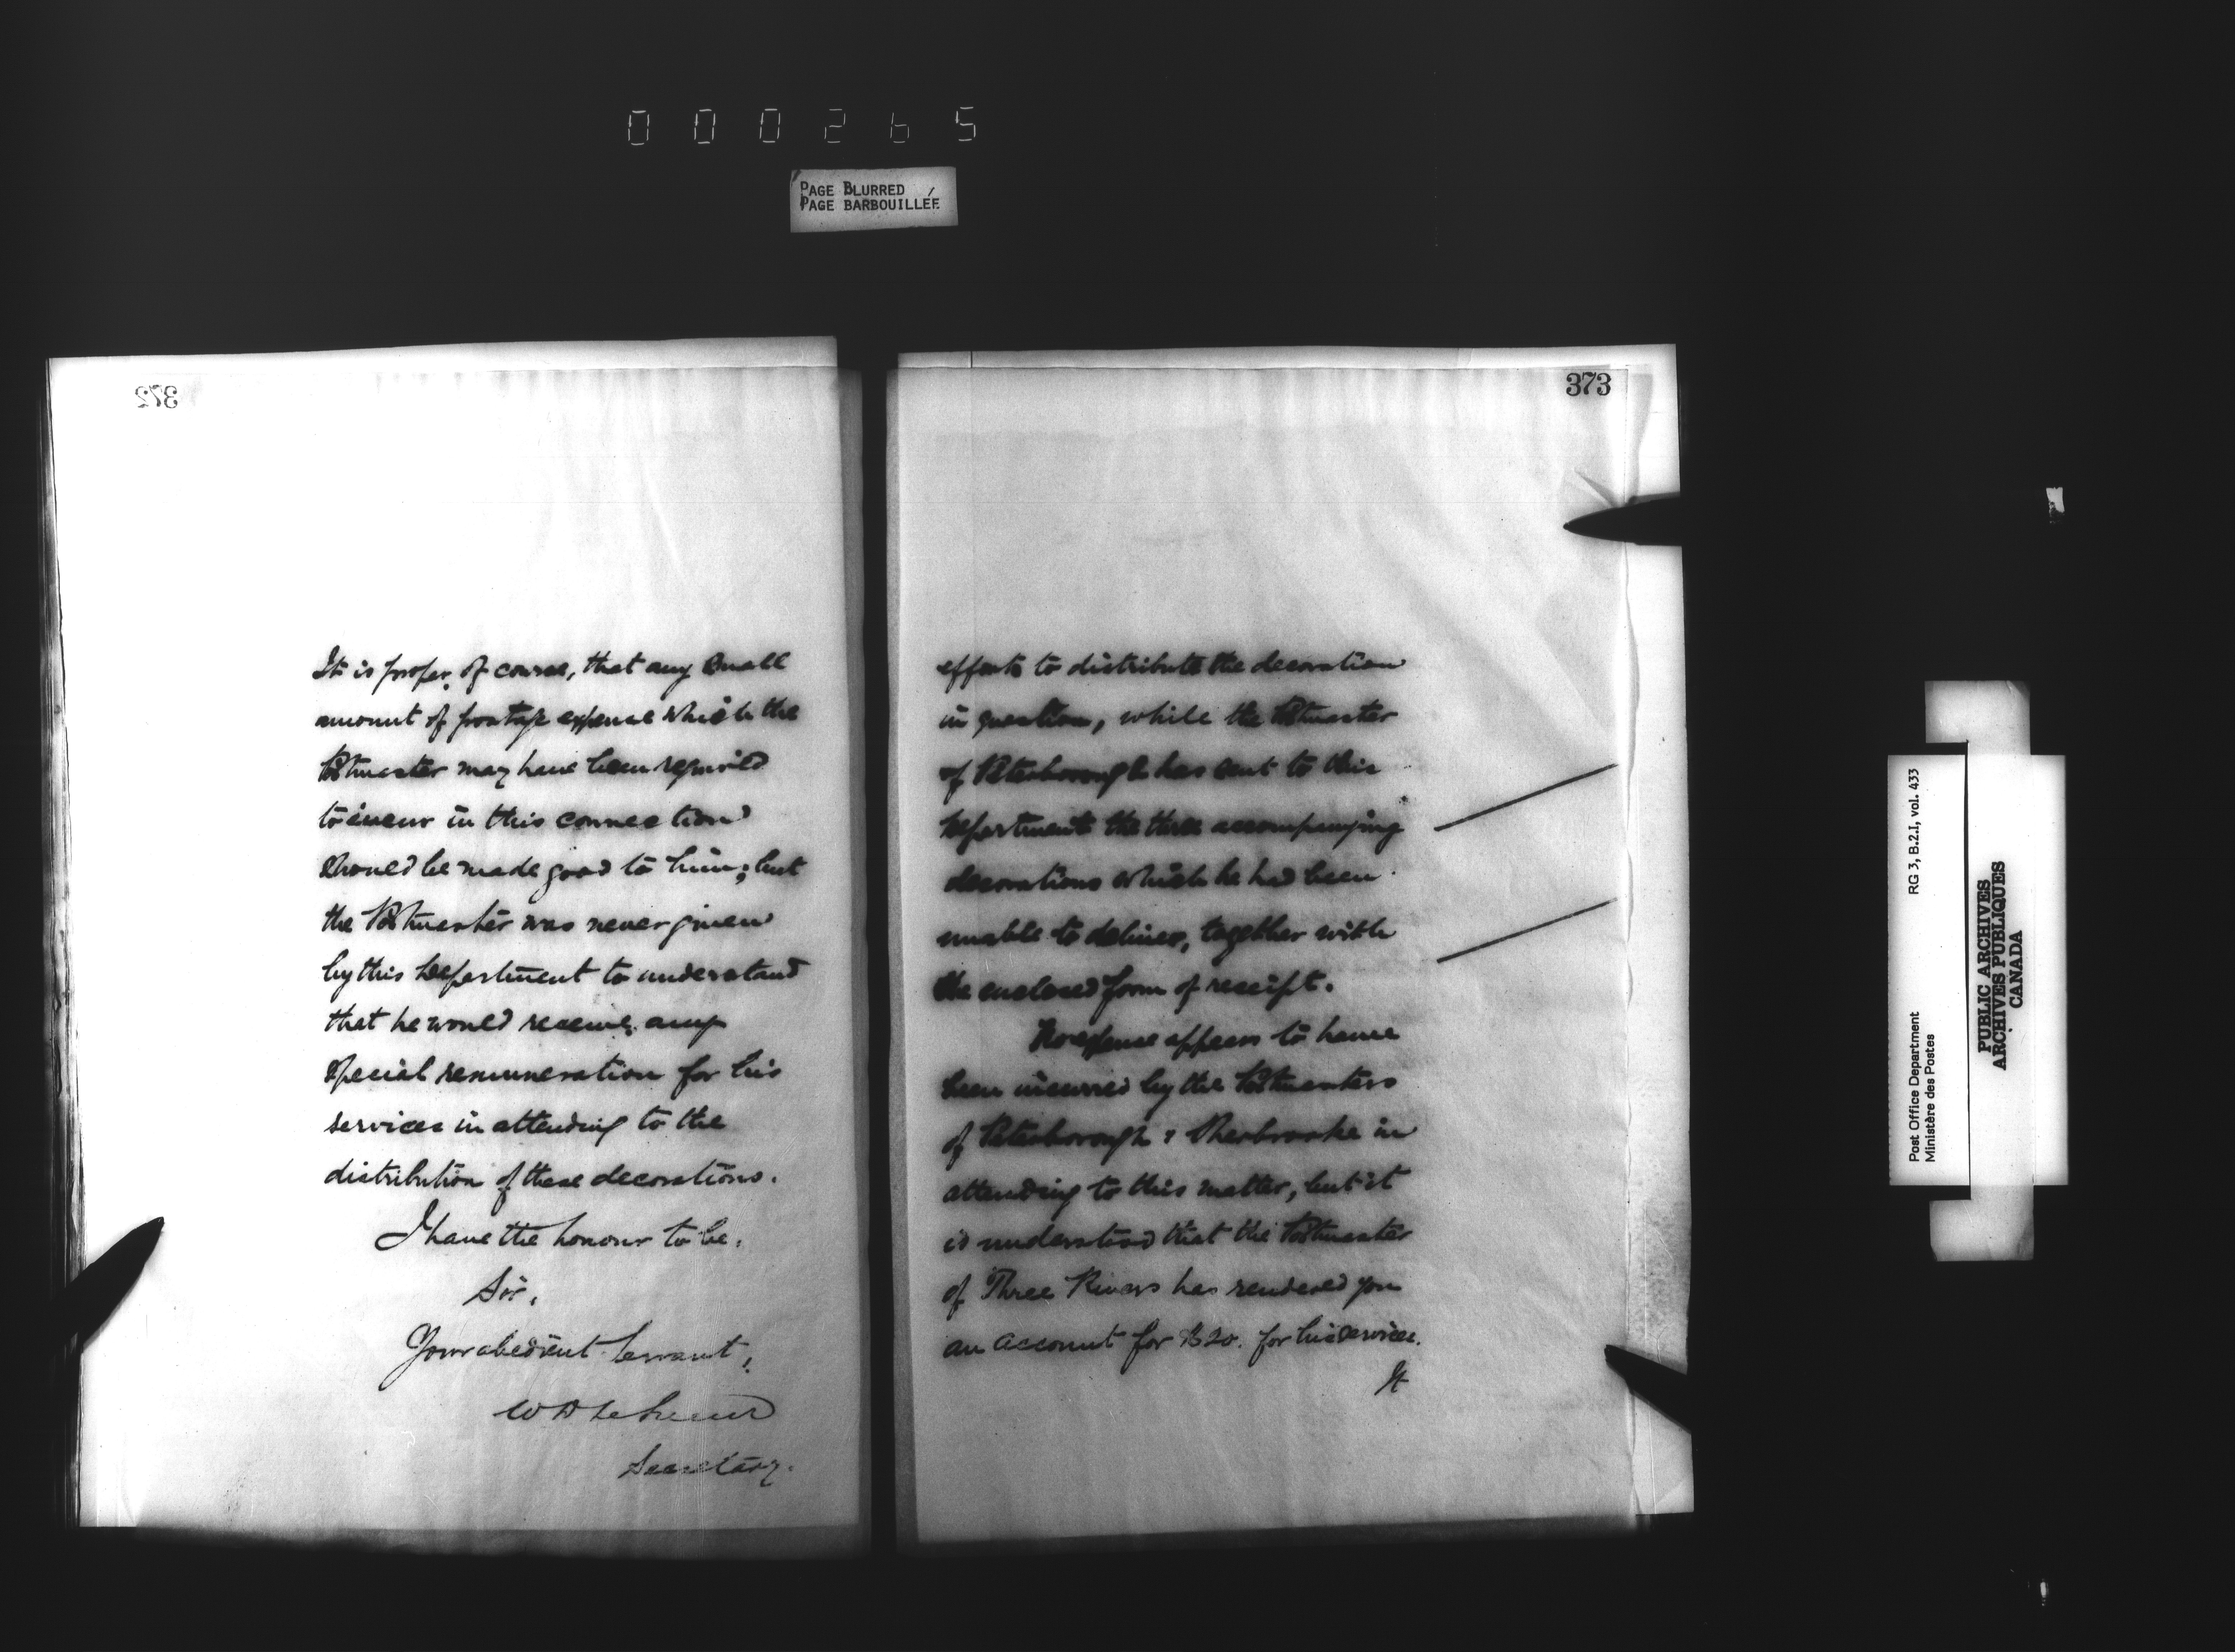 000265
PAGE BLURRED
PAGE BARBOUILLÉE
372
It is proper, of course, that any small
amount of postage expense which the
Postmaster may have been required
to incur in this connection
should be made good to him; but
the Postmaster was never given
by this Department to understand
that he would receive any
special remuneration for his
services in attending to the
distribution of these decorations.
I have the honour to be,
Sir,
Your obedient servant,
Secretary.
373
efforts to distribute the decoration
in question, while the Postmaster
of Peterborough has sent to this
Department the three accompanying
decorations which he had been
unable to deliver, together with
the enclosed form of receipt.
No expense appears to have
been incurred by the Postmasters
of Peterborough & Sherbrooke in
attending to this matter, but it
is understood that the Postmaster
of Three Rivers has rendered you
an account for $20. for his services.
It
Post Office Department
Ministère des Postes
RG 3, B.2.I, vol. 433
PUBLIC ARCHIVES
ARCHIVES PUBLIQUES
CANADA